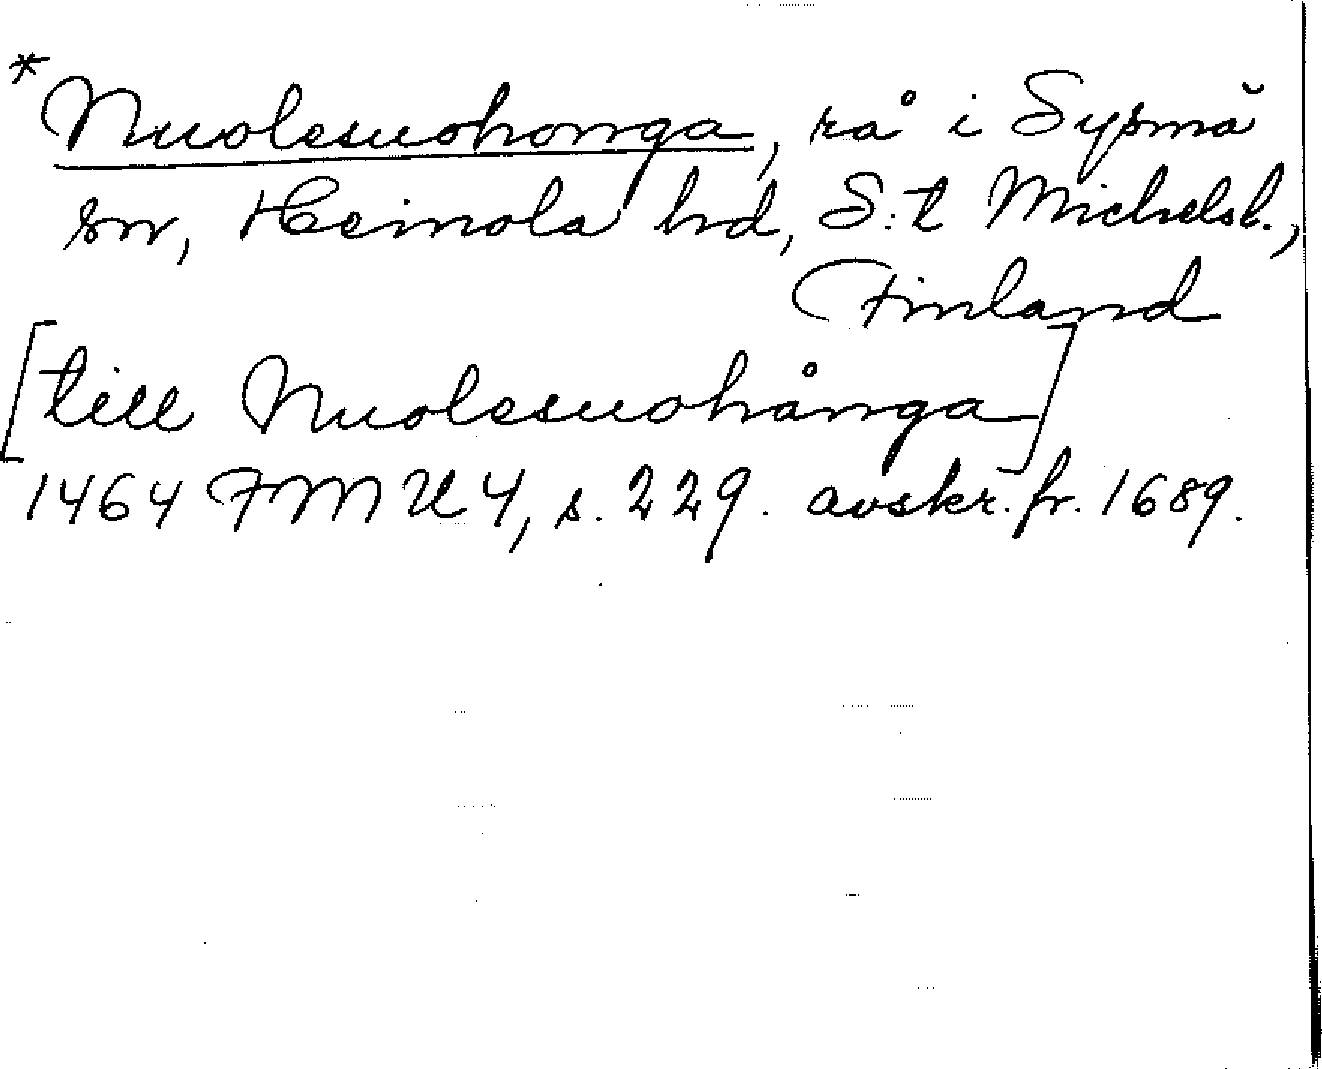 *Nuolesuohonga, rå i Sysmä
sn, Heinola hd, S:t Michelsl.,
Finland
[till Nuolesuohånga]
1464 FMU 4, s. 229. avskr. fr. 1689.